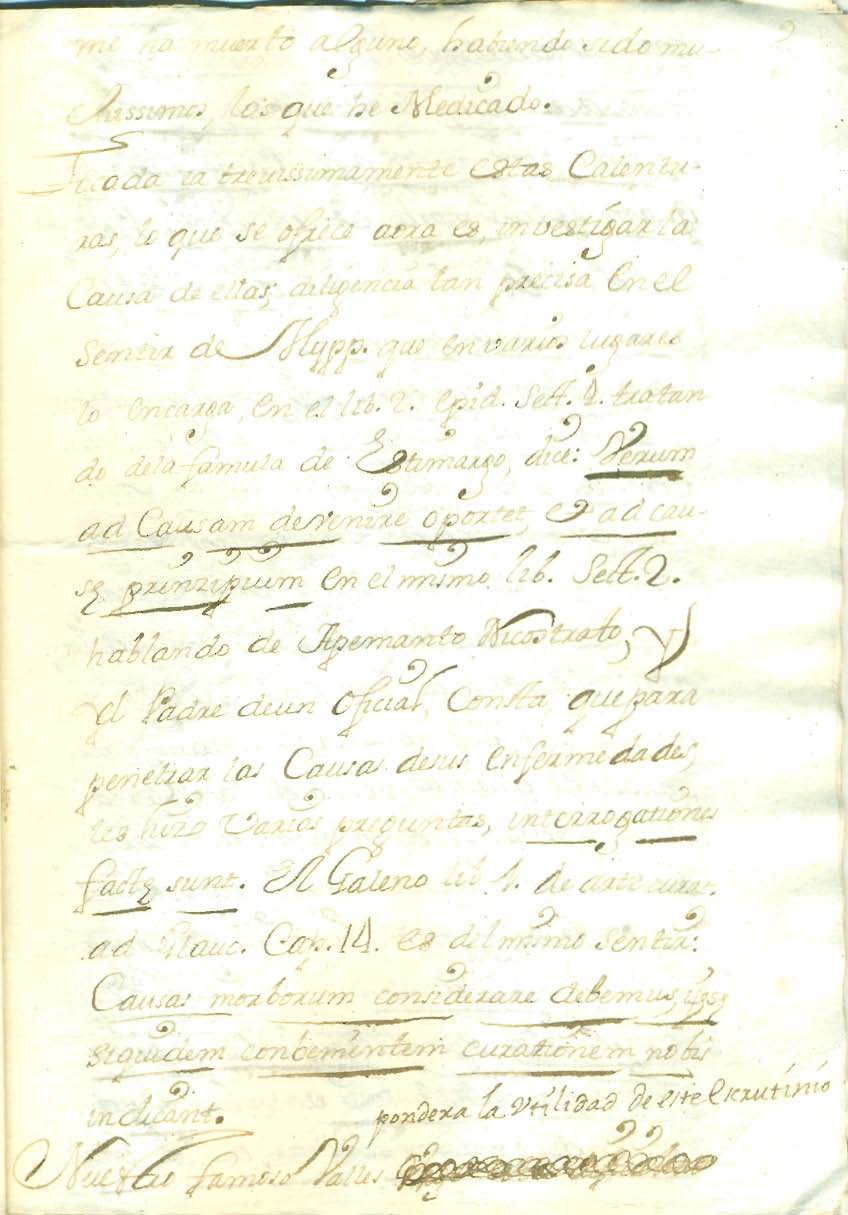 2
me ha muerto alguno, habiendo sido mu-
chissimos, los que he Medicado.
Tocada ia brevissimamente estas Calentu-
ras, lo que se ofrece aora es, investigar la
Causa de ellas; diligencia tan precisa en el
Sentir de Hypp. que en varios lugares
lo encarga, en el lib. 2. epid. Sect. 4. tratan
do dela famula de Estimargo, dice: Verum
ad Causam devenire oportet, et ad cau-
sę prinzipium en el mismo lib. Sect. 2.
hablando de Apemanto Nicostrato, y
el Padre deun Oficial, Consta que para
penetrar las Causas desus enfermedades,
les hizo Varias preguntas, interrogationes
factę sunt. El Galeno lib. 1. de arte curat.
ad Glauc. Cap. 14. es del mismo Sentir:
Causas morborum considerare debemus, ipsę
siquidem conbenientem curationem nobis
indicant.
pondera la vtilidad de este escrutinio
Nuestro famoso Valles